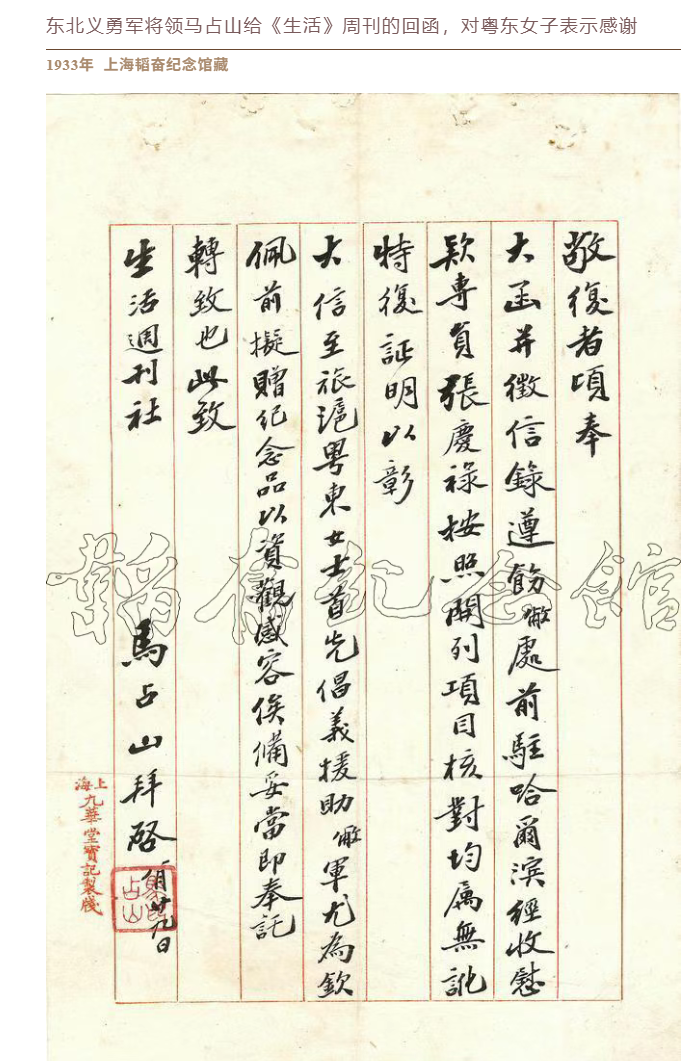 东北义勇军将领马占山给《生活》周刊的回函，对粤东女子表示感谢
1933年 上海韬奋纪念馆藏
敬復者頃奉
大函并徵信錄遵飭敝處前駐哈爾濱經收慰
款專員張慶祿按照開列項目核對均屬無訛
特復証明以彰
大信至旅滬粵東女士首先倡義援助敝軍尤為欽
佩前擬贈紀念品以資觀感容俟備妥當即奉託
轉致也此致
生活週刊社
馬占山拜啓
廿九日
上海九華堂寶記製牋
韜奮紀念館